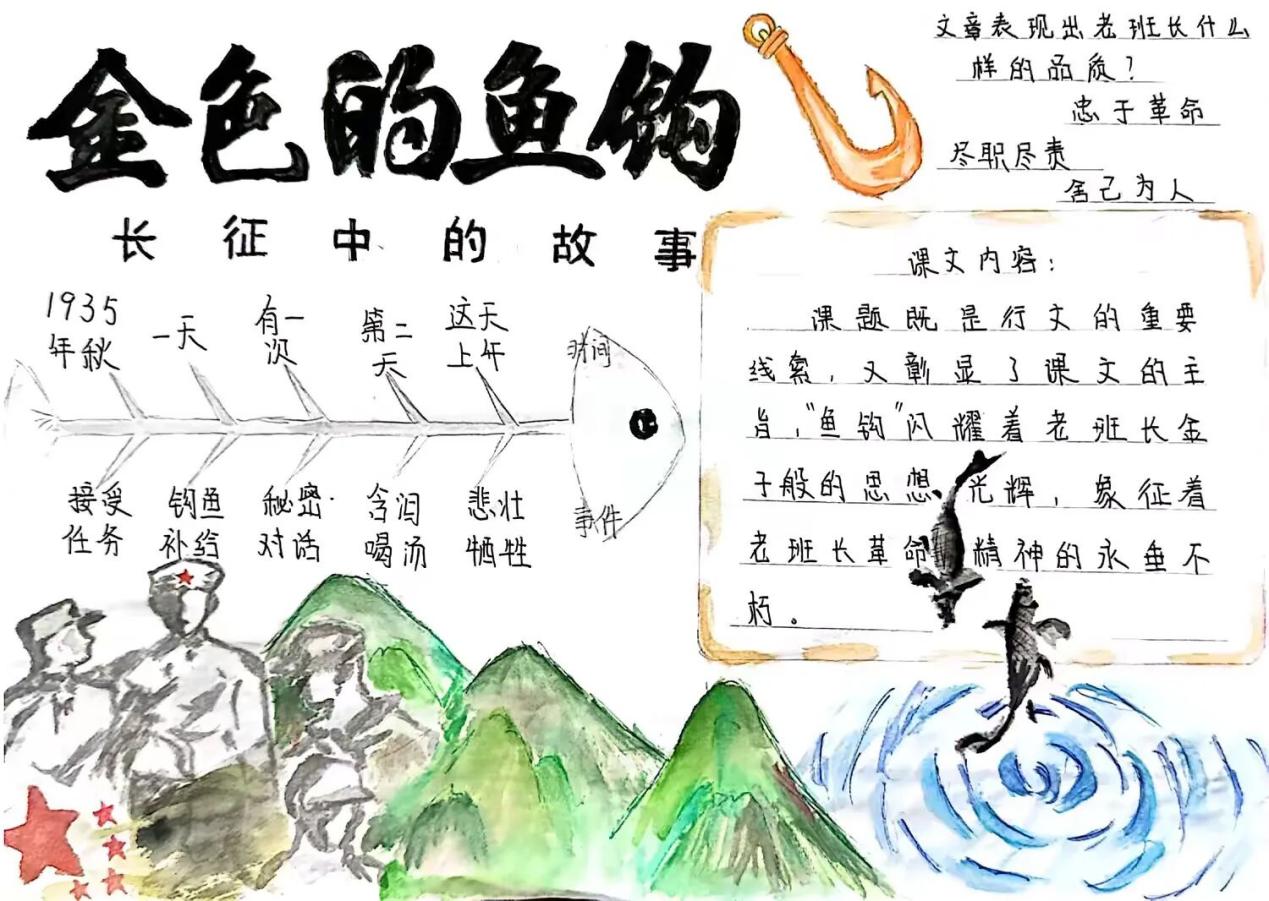 金色的鱼钩
长征中的故事
文章表现出老班长什么
样的品质？
忠于革命
尽职尽责
舍己为人
1935
年秋
一天
有一
次
第二
天
这天
上午
时间
接受
任务
钩鱼
补给
秘密
对话
含泪
喝汤
悲壮
牺牲
事件
课文内容：
课题既是行文的重要
线索，又彰显了课文的主
旨，“鱼钩”闪耀着老班长金
子般的思想、光辉，象征着
老班长革命精神的永垂不
朽。